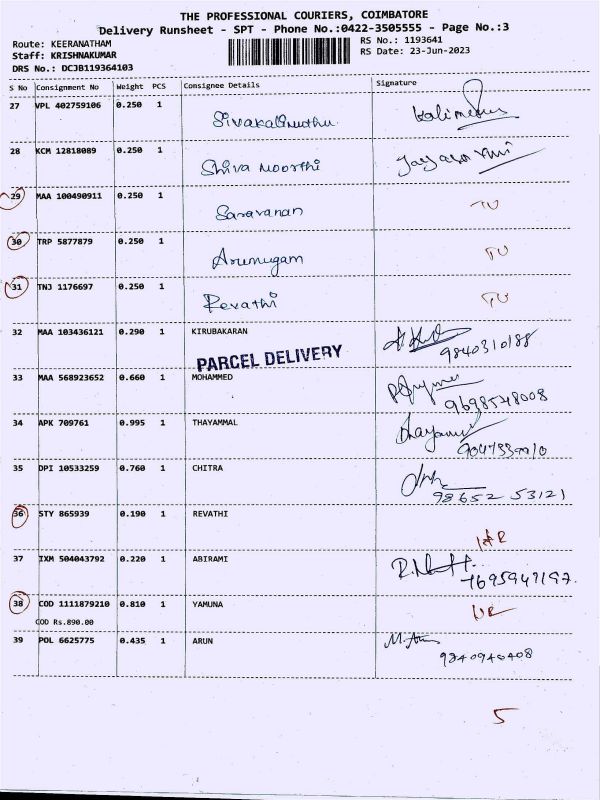 THE PROFESSIONAL COURIERS, COIMBATORE
Delivery Runsheet - SPT - Phone No.:0422-3505555 - Page No.:3
Route: KEERANATHAM
RS No.: 1193641
Staff: KRISHNAKUMAR
RS Date: 23-Jun-2023
DRS No.: DCJB119364103
S No Consignment No Weight PCS Consignee Details Signature
27 VPL 402759106 0.250 1 Sivakalimuthu
28 KCM 12818089 0.250 1 Shiva moorthi
29 MAA 100490911 0.250 1 Saravanan TU
30 TRP 5877879 0.250 1 Arumugam TU
31 TNJ 1176697 0.250 1 Revathi TU
32 MAA 103436121 0.290 1 KIRUBAKARAN
9840310188
PARCEL DELIVERY
33 MAA 568923652 0.660 1 MOHAMMED
9698548008
34 APK 709761 0.995 1 THAYAMMAL
35 DPI 10533259 0.760 1 CHITRA
98652 53121
36 STY 865939 0.190 1 REVATHI
37 IXM 504043792 0.220 1 ABIRAMI
7695947197
38 COD 1111879210 0.810 1 YAMUNA
COD Rs.890.00
39 POL 6625775 0.435 1 ARUN
9840940408
5